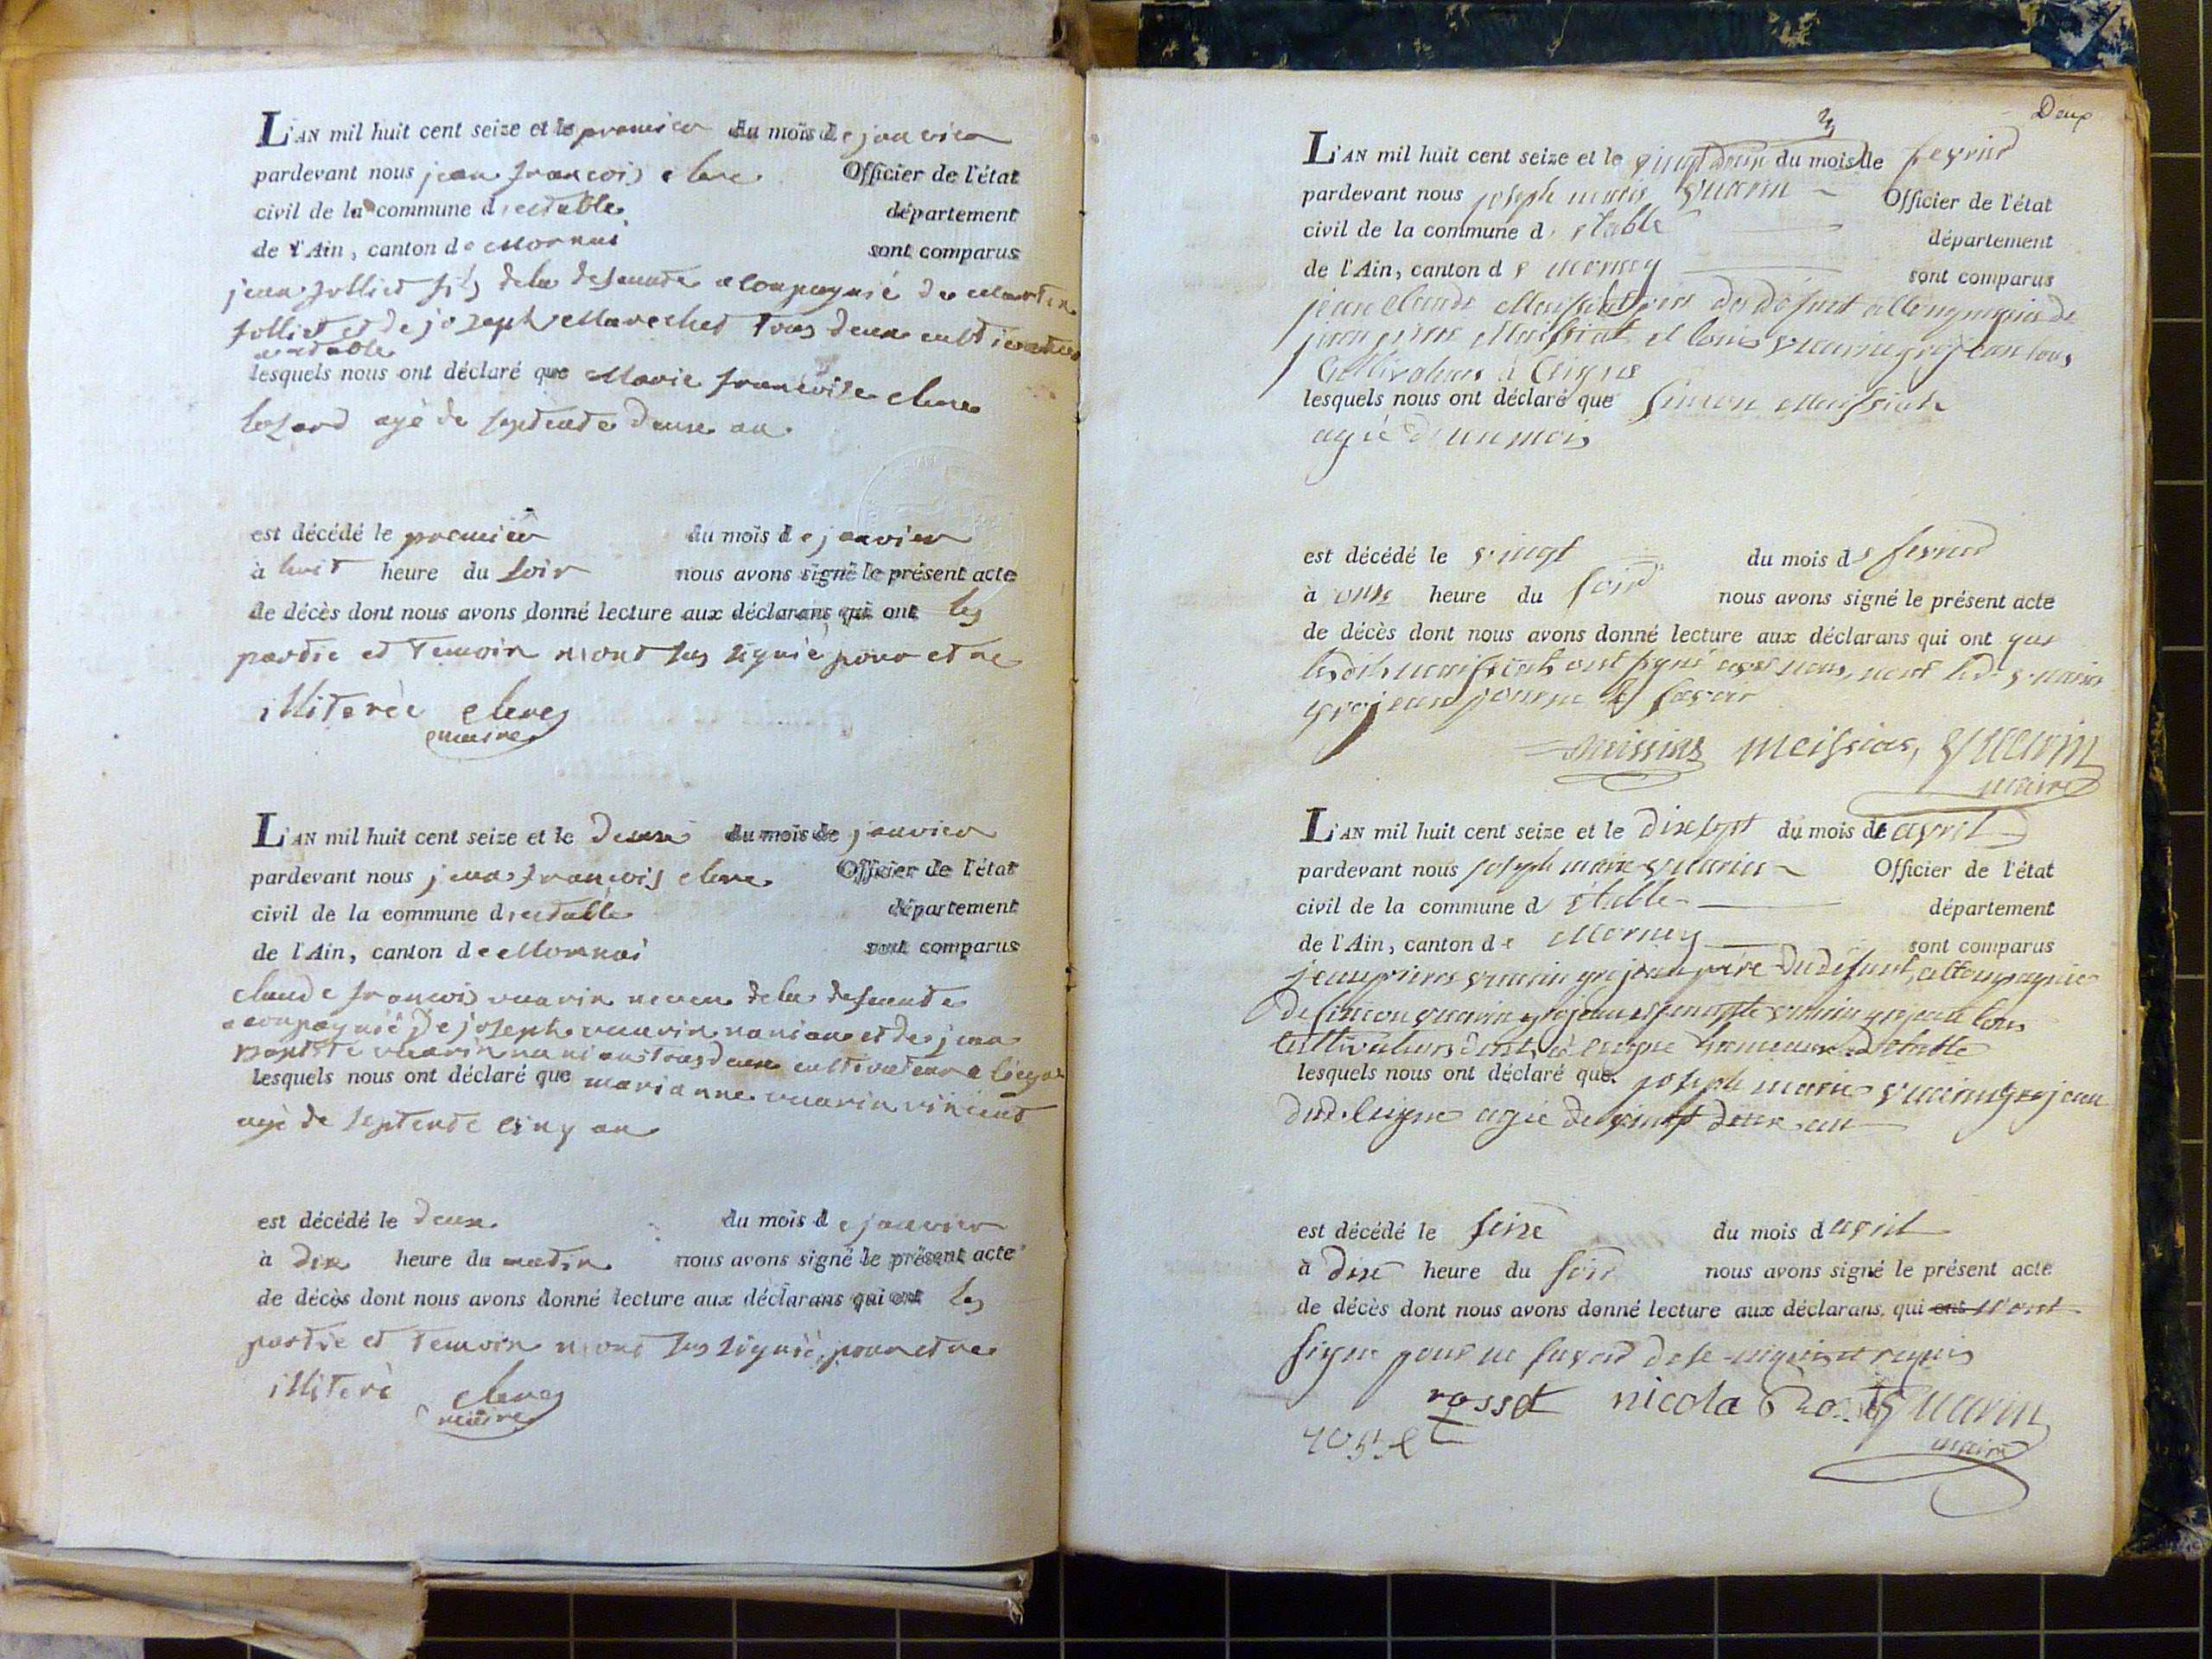 L'AN mil huit cent seize et le premier du mois de janvier
pardevant nous jean françois clerc Officier de l'état
civil de la commune destable département
de l'Ain, canton de Mornai sont comparus
jean jolliet fils dela defeunte acompagnié de Martin
jolliet et de joseph Marechet tous deux cultivateur
a estable
lesquels nous ont déclaré que Marie françoise clerc
agé de septente deux an
est décédé le premier du mois de janvier
à huit heure du soir nous avons signé le présent acte
de décès dont nous avons donné lecture aux déclarans qui ont les
partie et temoin n'ont pas signié pour etre
illiterèe clerc
maire
L'AN mil huit cent seize et le deux du mois de janvier
pardevant nous jean françois clerc Officier de l'état
civil de la commune destable département
de l'Ain, canton de Mornai sont comparus
claude françois vuarin neveu dela defeunte
acompagnié de joseph vuarin naniam et de jean
baptiste vuarin naniam tous deux cultivateur a
lesquels nous ont déclaré que marianne vuarin vincent
agé de septente cinq an
est décédé le deux du mois de janvier
à dix heure du matin nous avons signé le présent acte
de décès dont nous avons donné lecture aux déclarans qui ont les
partie et temoin n'ont pas signié pour etre
illiterè clerc
maire
Deux
L'AN mil huit cent seize et le vingt deux du mois de fevrier
pardevant nous joseph marie vuarin Officier de l'état
civil de la commune d'étable département
de l'Ain, canton de mornay sont comparus
jean claude Maissiat père du défunt accompagnié de
jean pierre Maissiat et louis vuarin grosjean tous
Cultivateurs à Ceigne
lesquels nous ont déclaré que simon Maissiat
agié d'un mois
est décédé le vingt du mois de fevrier
à onze heure du soir nous avons signé le présent acte
de décès dont nous avons donné lecture aux déclarans qui ont que
lesdits maissiat ont signé avec nous, non led. vuarin
grosjean pour ne le savoir
maissiat meissias, vuarin
maire
L'AN mil huit cent seize et le dix sept du mois de avril
pardevant nous joseph marie vuarin Officier de l'état
civil de la commune d'étable département
de l'Ain, canton de Mornay sont comparus
jean pierre vuarin grosjean père du défunt, accompagnié
de simon vuarin grosjean et vuarin grosjean tous
cultivateurs à ceigne hameau d'étable
lesquels nous ont déclaré que joseph marie vuarin grosjean
dud. Ceigne agié de vingt deux an
est décédé le seize du mois d avril
à dix heure du soir nous avons signé le présent acte
de décès dont nous avons donné lecture aux déclarans qui ont n'ont
signé pour ne savoir de ce enquis et requis
rosset nicola vuarin
maire